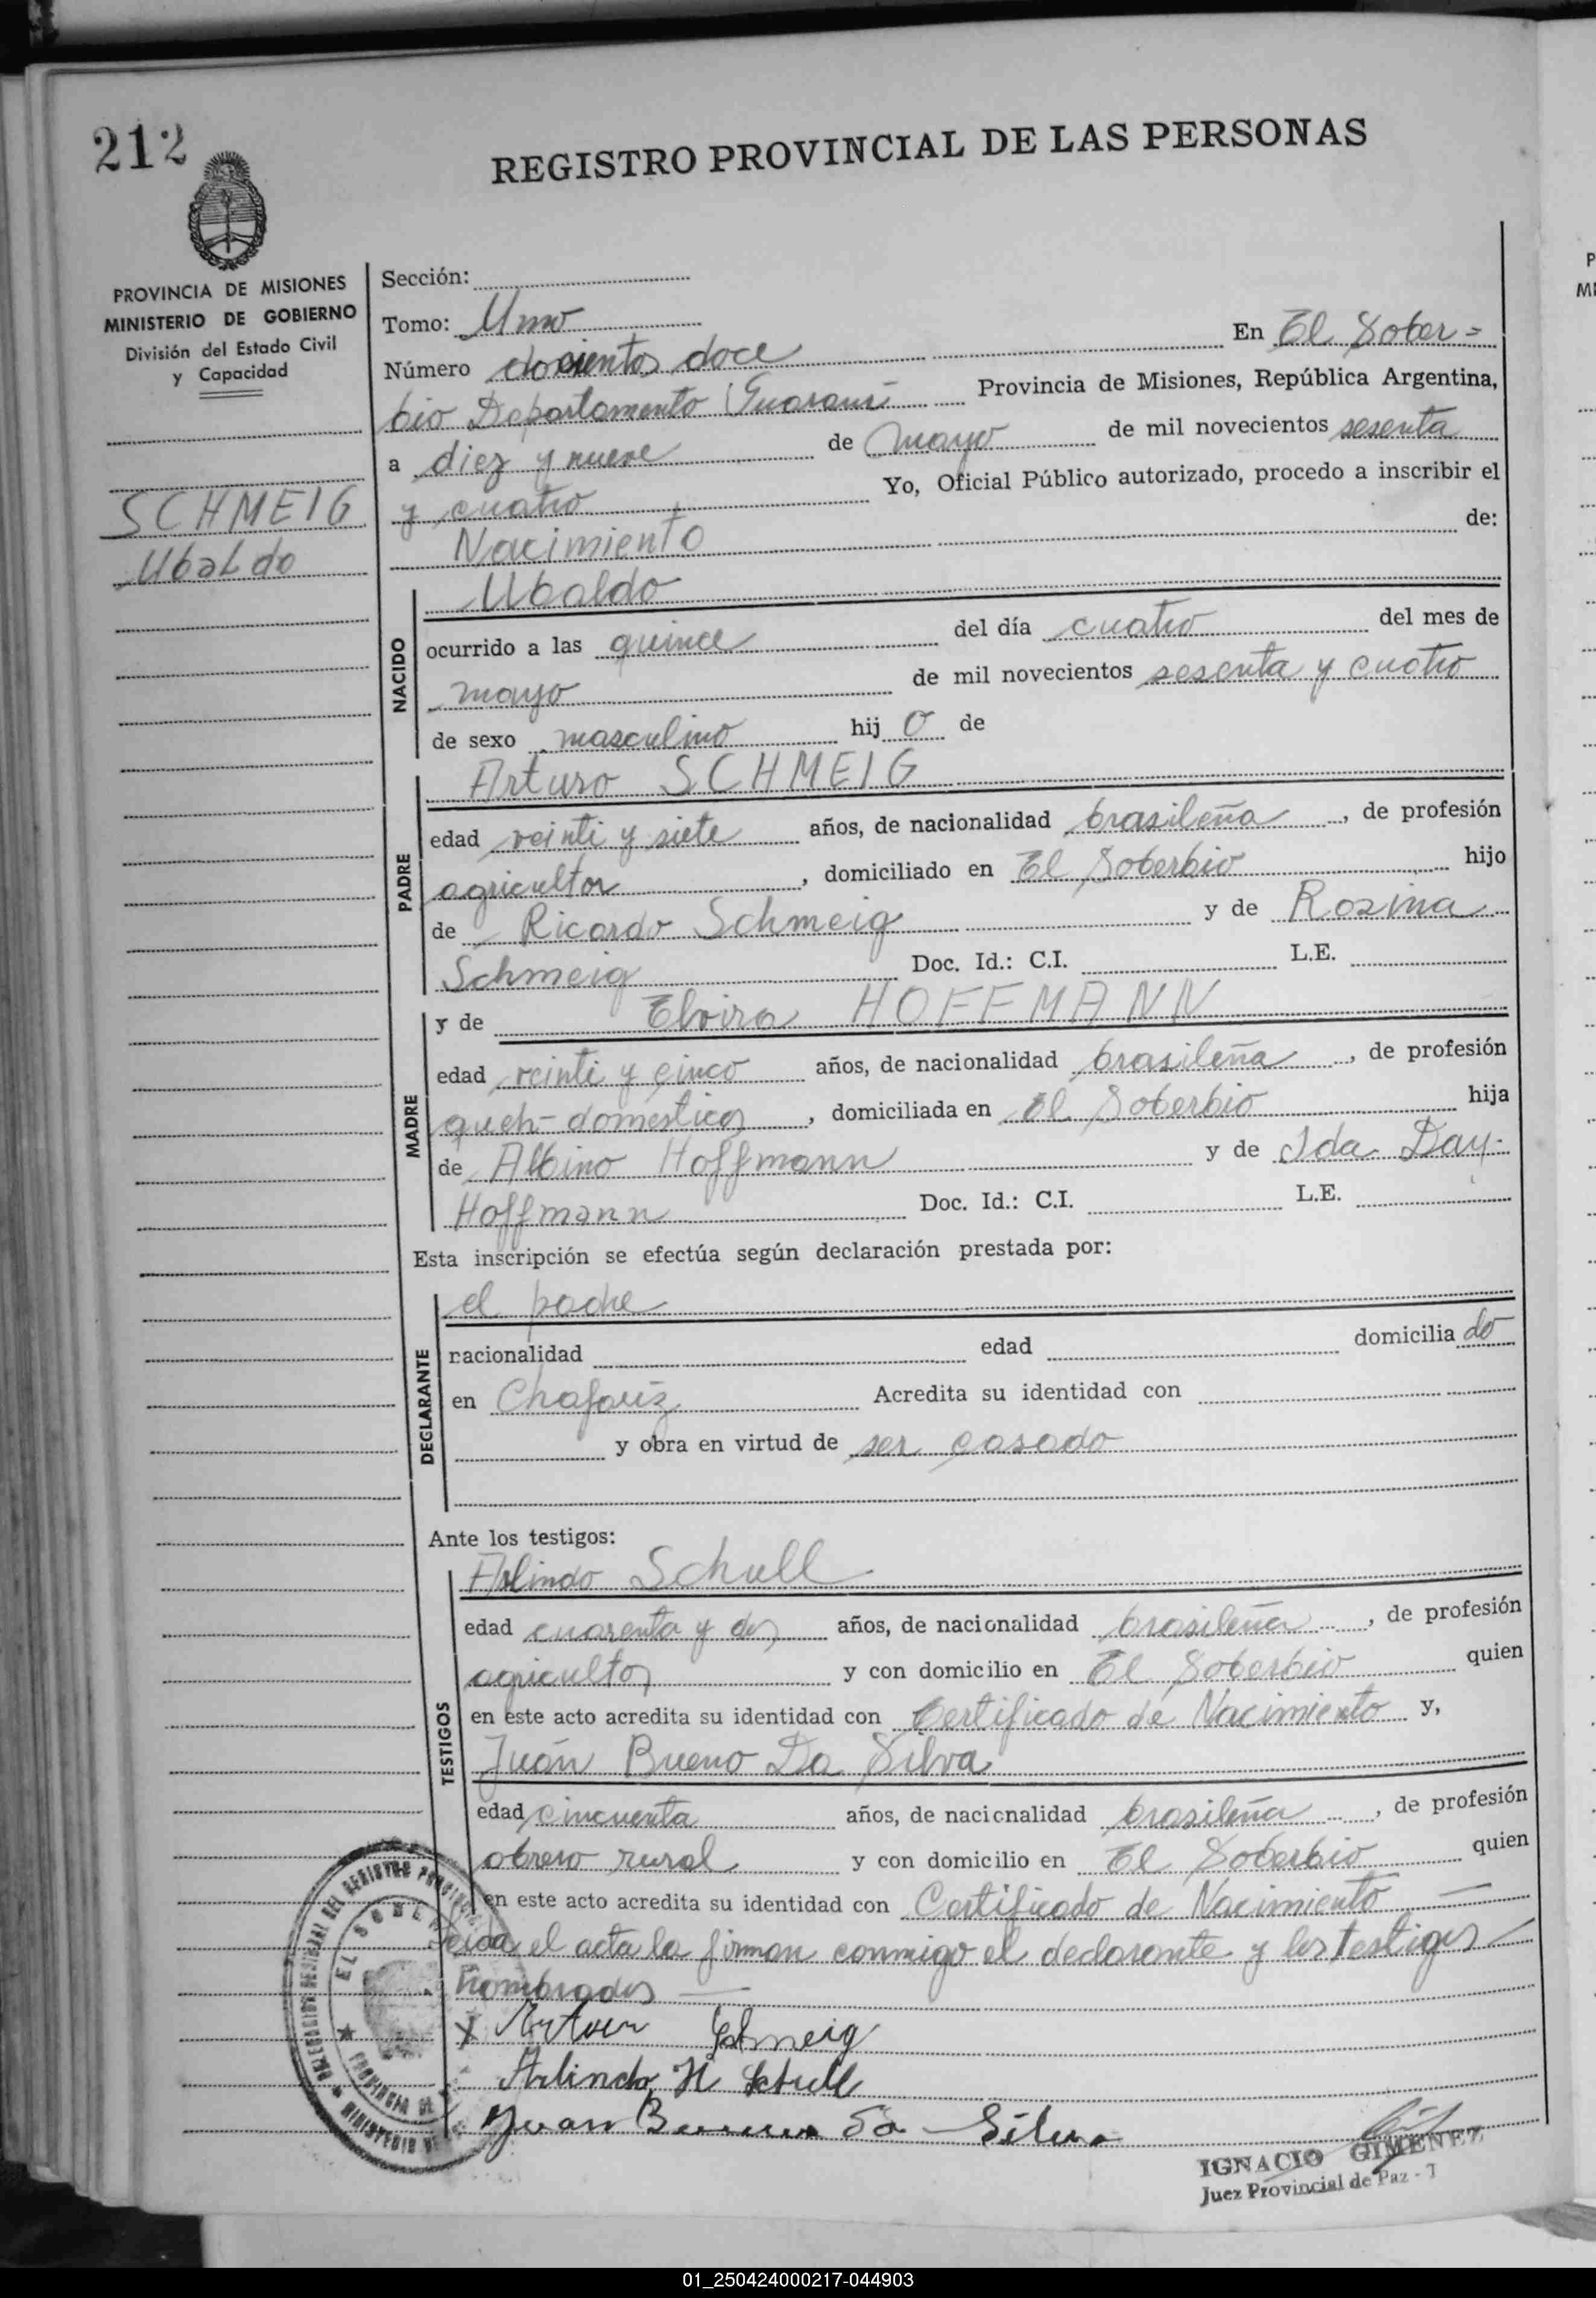 212
REGISTRO PROVINCIAL DE LAS PERSONAS
PROVINCIA DE MISIONES
MINISTERIO DE GOBIERNO
División del Estado Civil
y Capacidad
SCHMEIG
Ubaldo
Sección:
Tomo: Uno
Número doscientos doce En El Sober=
bio Departamento Guaraní Provincia de Misiones, República Argentina,
a diez y nueve de mayo de mil novecientos sesenta
y cuatro Yo, Oficial Público autorizado, procedo a inscribir el
Nacimiento de:
NACIDO
Ubaldo
ocurrido a las quince del día cuatro del mes de
mayo de mil novecientos sesenta y cuatro
de sexo masculino hij o de
PADRE
Arturo SCHMEIG
edad veinti y siete años, de nacionalidad brasileña, de profesión
agricultor, domiciliado en El Soberbio hijo
de Ricardo Schmeig y de Rozina
Schmeig Doc. Id.: C.I. L.E.
MADRE
y de Elvira HOFFMANN
edad veinti y cinco años, de nacionalidad brasileña, de profesión
queh-domesticos, domiciliada en El Soberbio hija
de Albino Hoffmann y de Ida Day-
Hoffmann Doc. Id.: C.I. L.E.
Esta inscripción se efectúa según declaración prestada por:
DECLARANTE
el padre
nacionalidad edad domicilia do
en Chafariz Acredita su identidad con
y obra en virtud de ser casado
Ante los testigos:
TESTIGOS
Arlindo Schull
edad cuarenta y dos años, de nacionalidad brasileña, de profesión
agricultor y con domicilio en El Soberbio quien
en este acto acredita su identidad con Certificado de Nacimiento y,
Juan Bueno Da Silva
edad cincuenta años, de nacionalidad brasileña, de profesión
obrero rural y con domicilio en El Soberbio quien
en este acto acredita su identidad con Certificado de Nacimiento
Leida el acta la firman conmigo el declarante y los testigos
nombrados
x Artur Schmeig
Arlindo H Schull
Juan Bueno da Silva
IGNACIO GIMENEZ
Juez Provincial de Paz
01_250424000217-044903